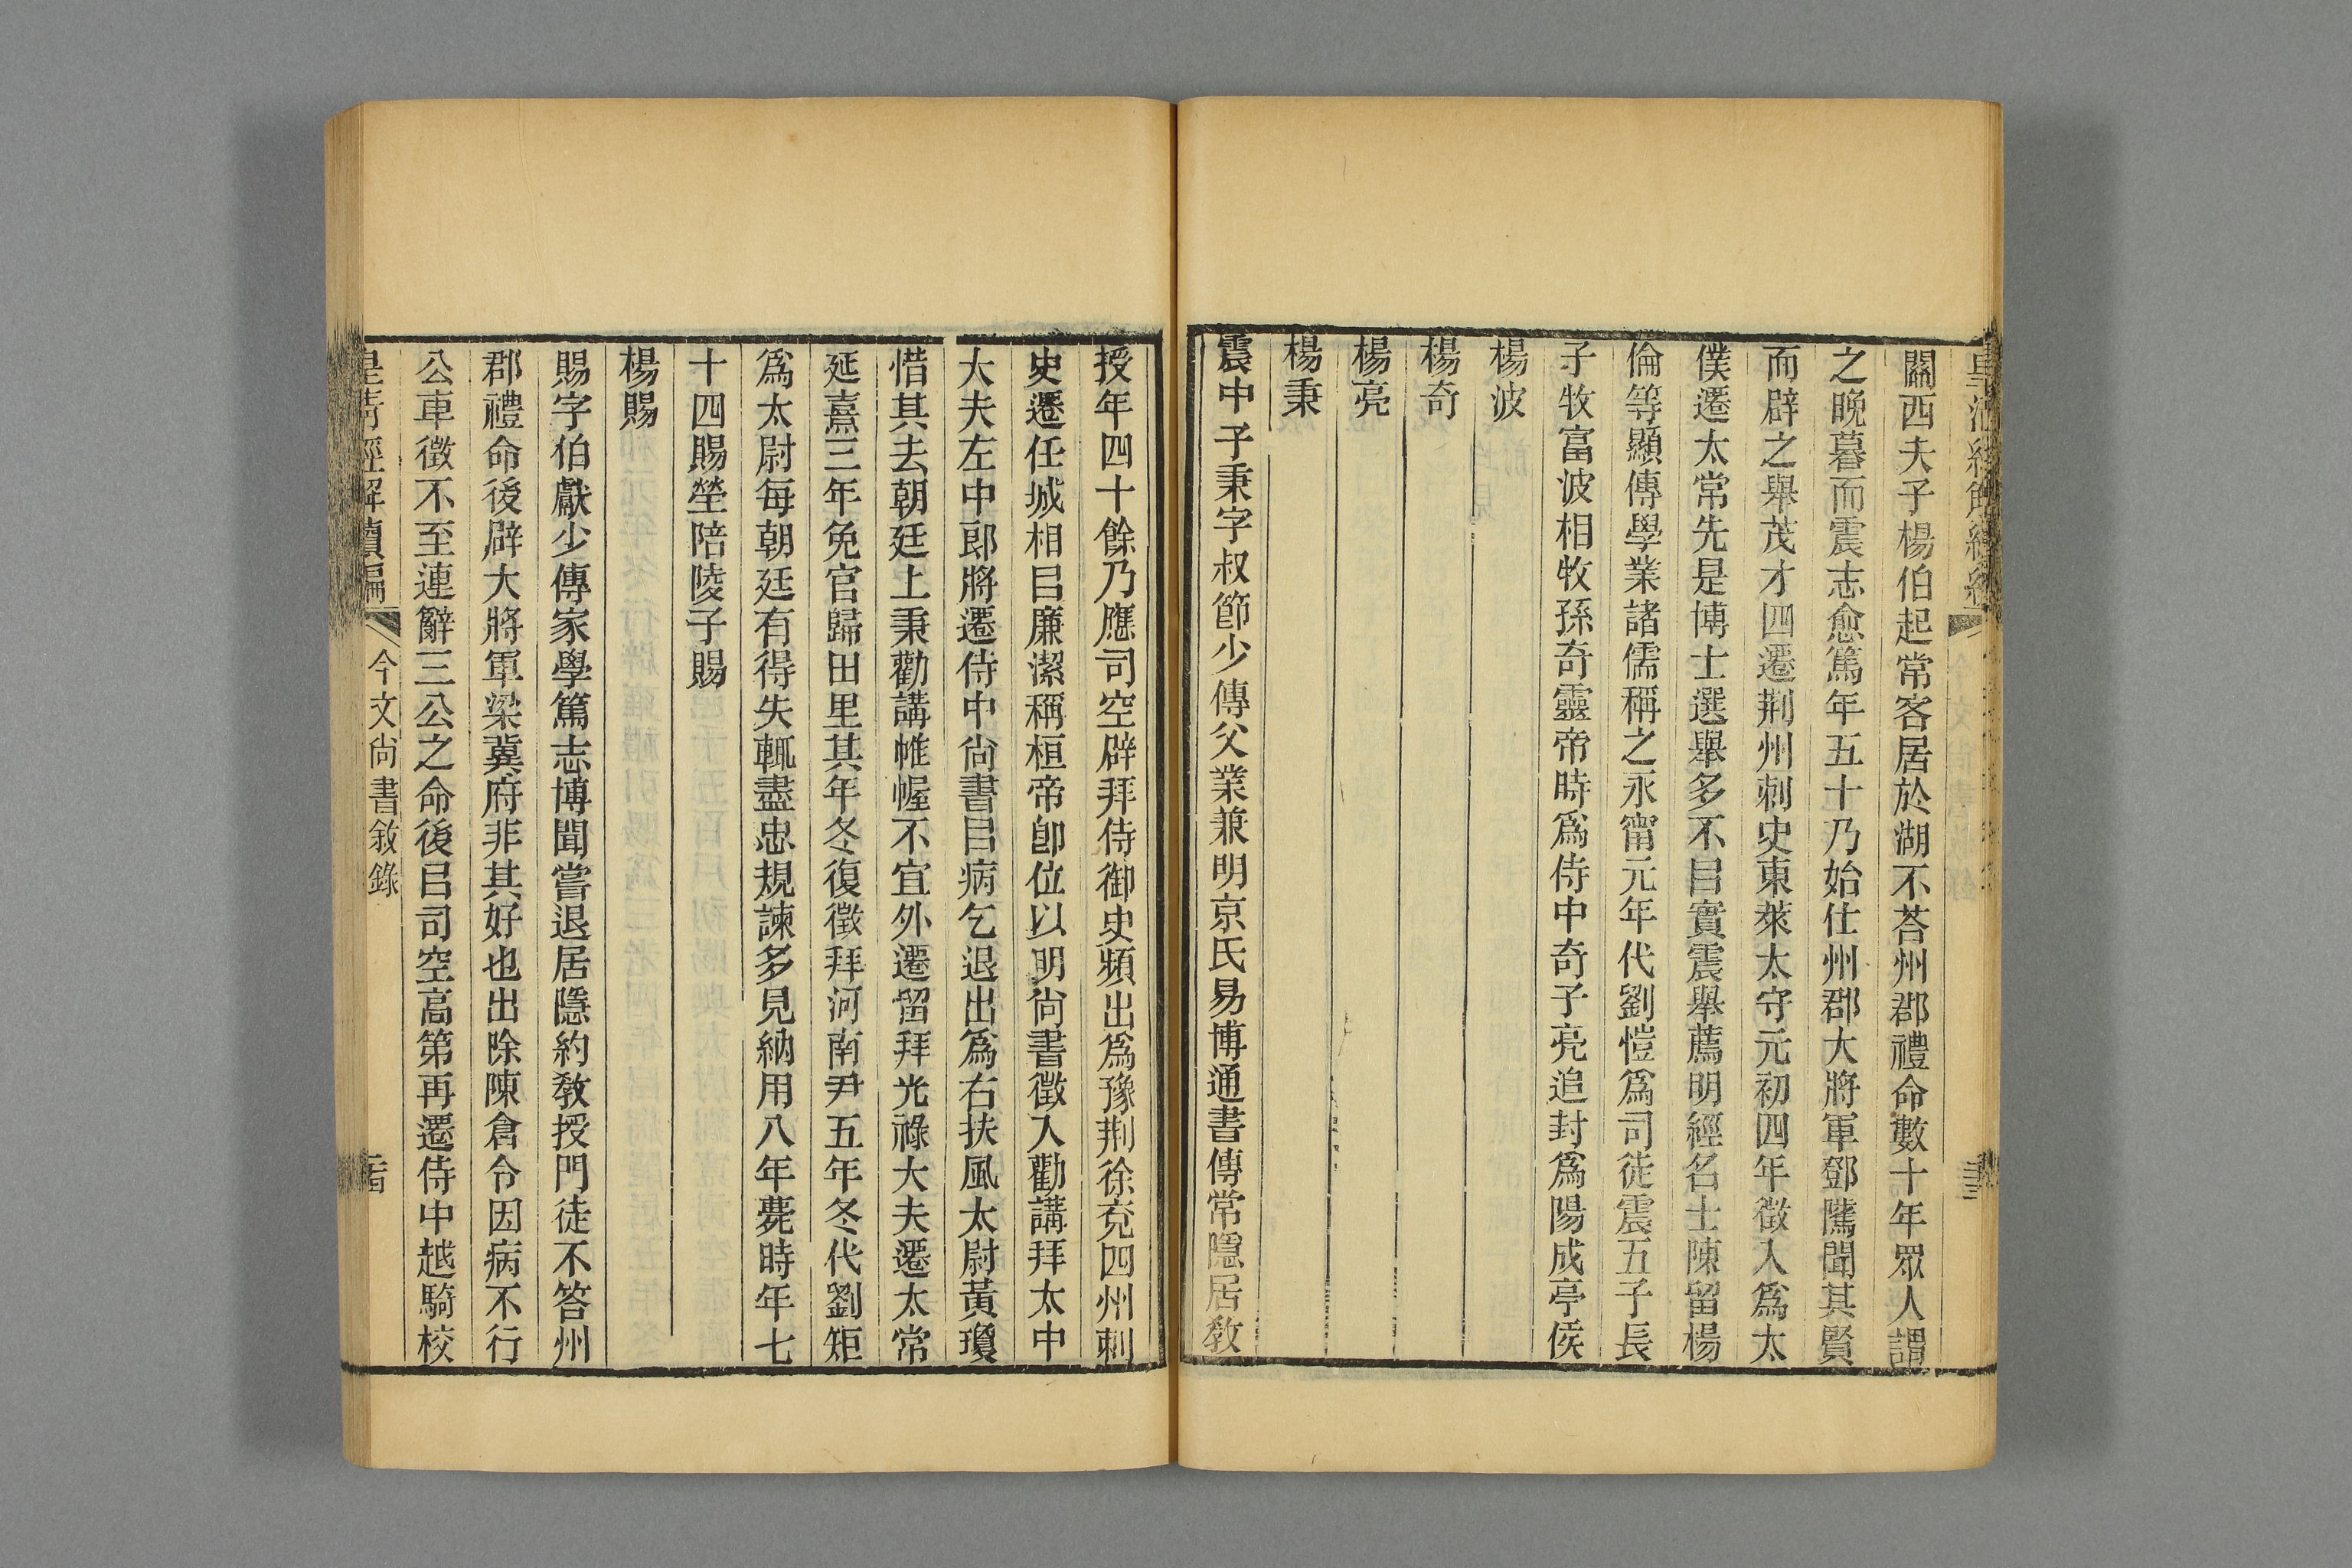 關西夫子楊伯起常客居於湖不荅州郡禮命數十年眾人謂
之晚暮而震志愈篤年五十乃始仕州郡大將軍鄧隲聞其賢
而辟之舉茂才四遷荆州刺史東萊太守元初四年徵入爲太
僕遷太常先是博士選舉多不㠯實震舉薦明經名士陳留楊
倫等顯傳學業諸儒稱之永甯元年代劉愷爲司徒震五子長
子牧富波相牧孫奇靈帝時爲侍中奇子亮追封爲陽成亭侯
楊波
楊奇
楊亮
楊秉
震中子秉字叔節少傳父業兼明京氏易博通書傳常隱居敎
授年四十餘乃應司空辟拜侍御史頻出爲豫荆徐兖四州刺
史遷任城相㠯廉潔稱桓帝卽位以明尙書徵入勸講拜太中
大夫左中郎將遷侍中尙書㠯病乞退出爲右扶風太尉黃瓊
惜其去朝廷上秉勸講帷幄不宜外遷留拜光祿大夫遷太常
延熹三年免官歸田里其年冬復徵拜河南尹五年冬代劉矩
爲太尉每朝廷有得失輒盡忠規諫多見納用八年薨時年七
十四賜塋陪陵子賜
楊賜
賜字伯獻少傳家學篤志博聞嘗退居隱約敎授門徒不答州
郡禮命後辟大將軍梁冀府非其好也出除陳倉令因病不行
公車徵不至連辭三公之命後㠯司空高第再遷侍中越騎校
皇清經解續編
今文尙書敘錄